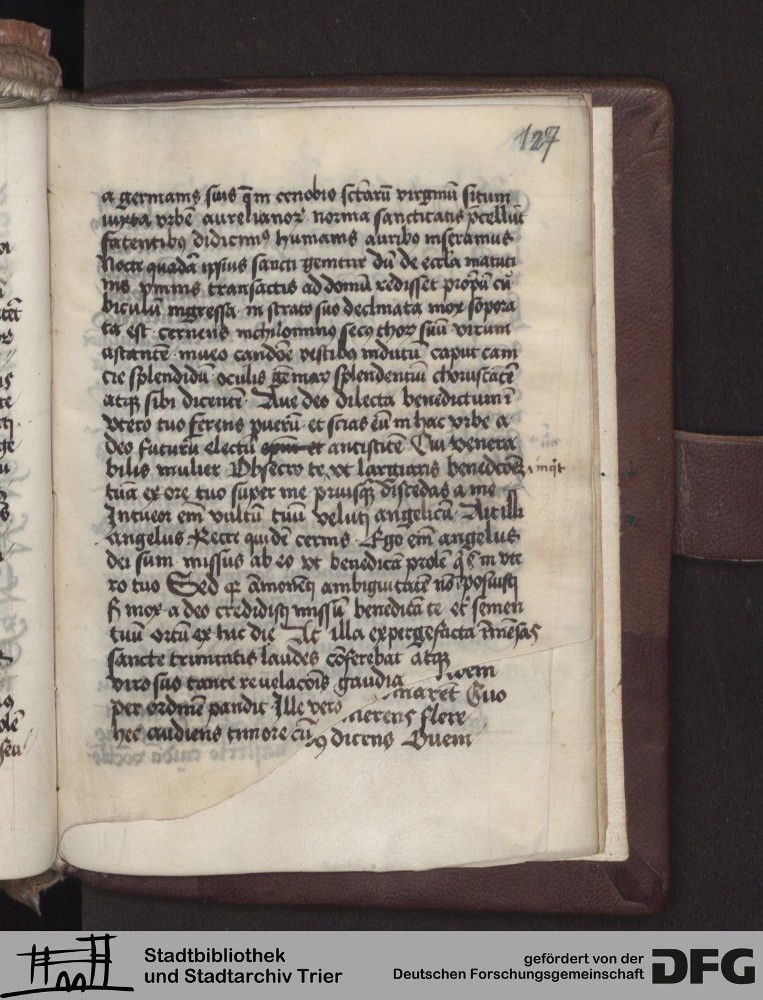 127
a germanis suis q̄ in cenobio sctārū virginū situm
iuxta vrbē aurelianoꝝ norma sanctitatis p̄cellūt
fatentibꝰ didicimꝰ humanis auribꝰ inseramus
Nocte quadā ipsius sancti genitrix dū de eccl̄a matuti
nis ymnis transactis ad domū redisset propriū cu
biculū ingressa in strato suo declinata mox sopora
ta est cernens nichilominꝰ secꝰ thoꝝ suū virum
astantē niueo candore vestibꝰ indutū caput cam
cie splēdidū oculis gēmaꝝ splendentiū choruscātē
atqꝫ sibi dicentē Aue deo dilecta benedictum ī
vtero tuo ferens puerū et scias eū in hac vrbe a
deo futurū electū antistitē Cui venera
bilis mulier Obsecro te vt largiaris benedictōeꝫ inqͥt
tuā ex ore tuo super me priusqꝫ discedas a me
Intueor em̄ vultū tuū veluti angelicū Ait illi
angelus Recte quidē cernis Ego em̄ angelus
dei sum missus ab eo vt benedicā prolē q̄ ē in vte
ro tuo Sed qꝛ āmonēti ambiguitatē nō posuisti
sꝫ mox a deo credidisti missū benedicā te et semen
tuū ortū ex hac die At illa expergefacta īmēsas
sancte trinitatis laudes cōferebat atqꝫ
viro suo tante reuelacōis gaudia
per ordinē pandit Ille vero
hec audiens timore cū
narēt Quo
merens flere
dicens Quem
Stadtbibliothek
und Stadtarchiv Trier
gefördert von der
Deutschen Forschungsgemeinschaft
DFG